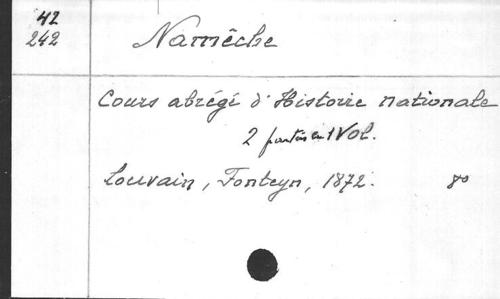 42
242
Namêche
Cours abrégé d'Histoire nationale
2 parties en 1 Vol.
Louvain, Fonteyn, 1872. 8°